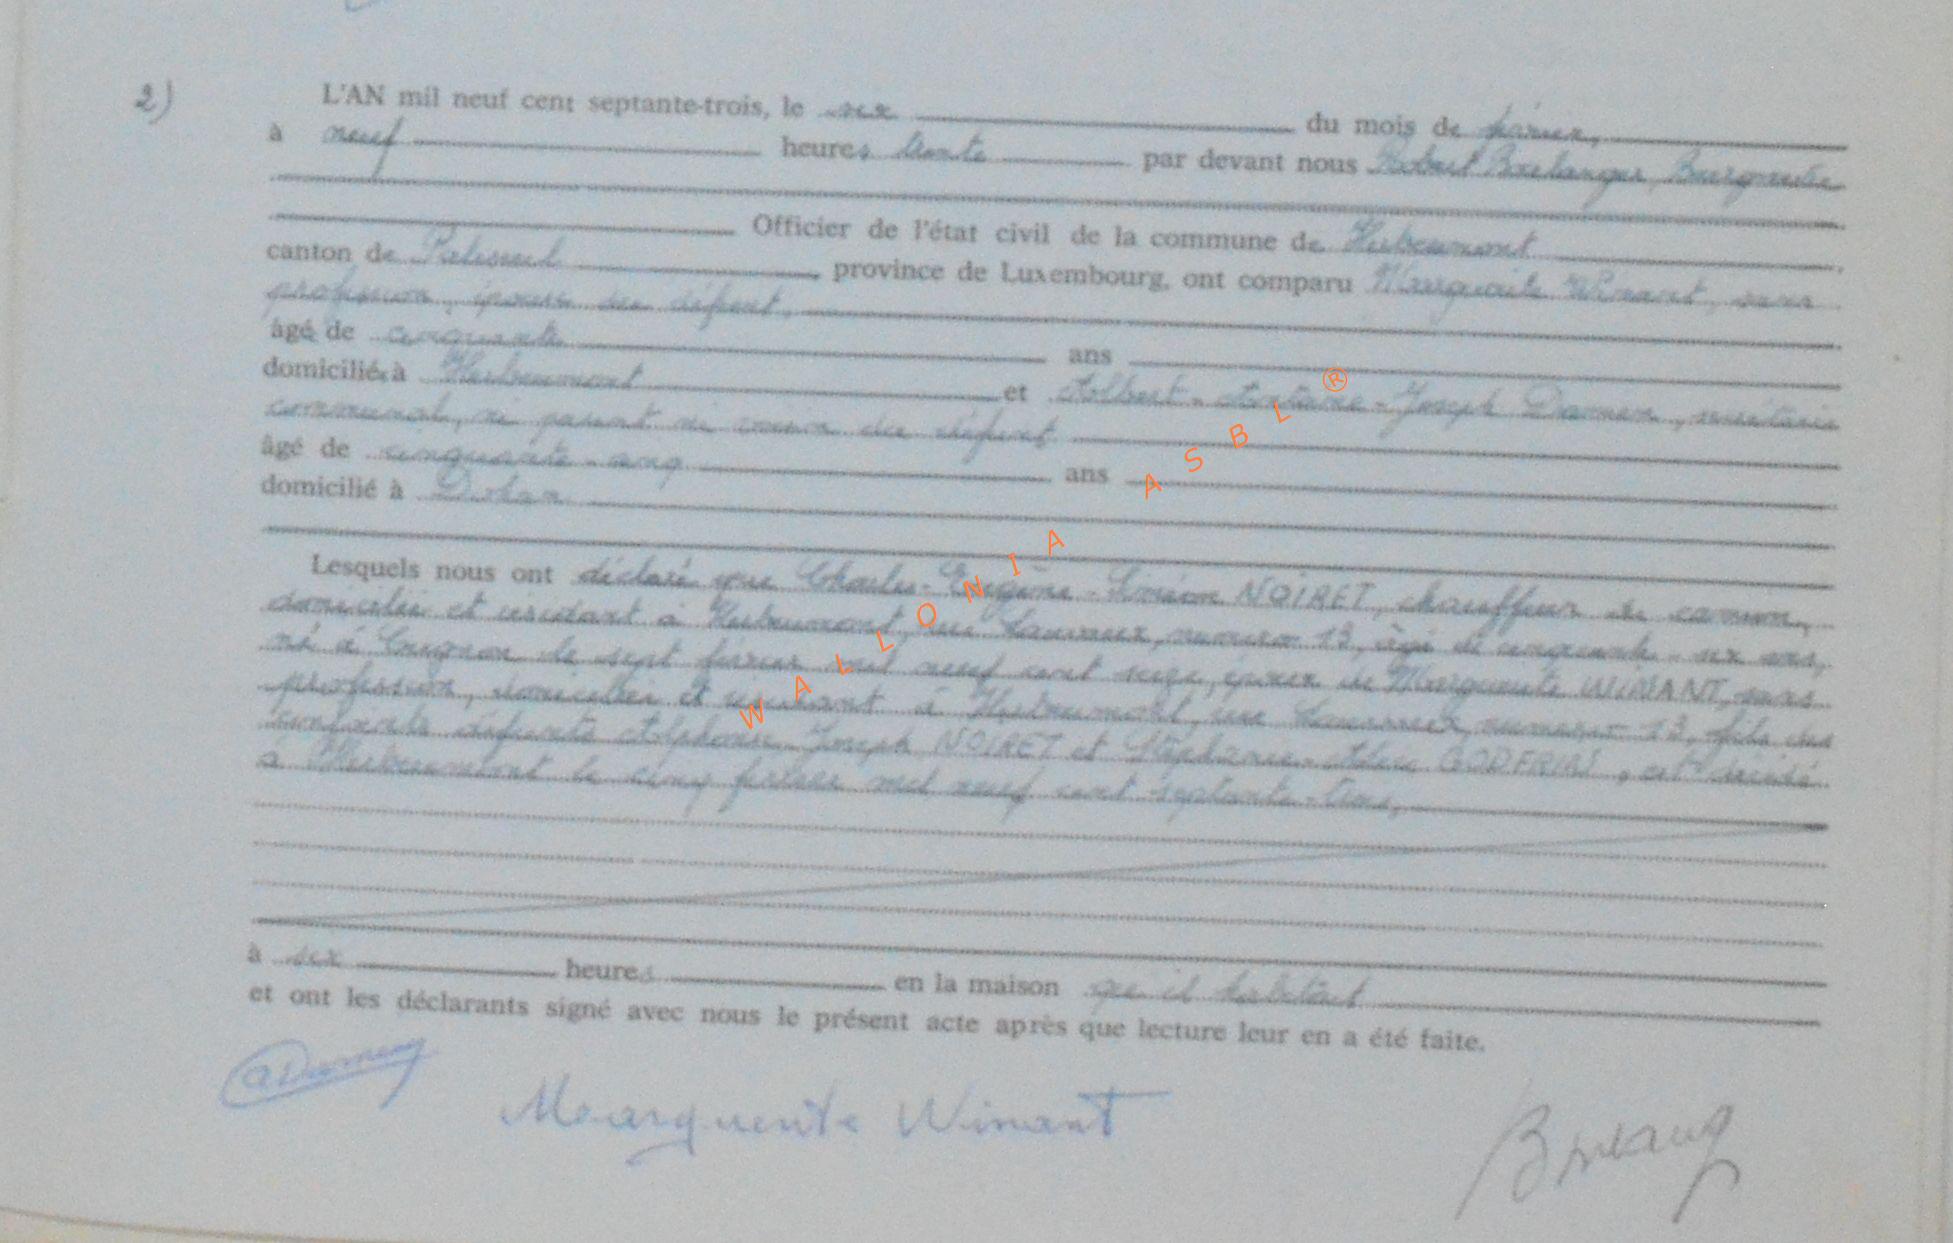 2)
L'AN mil neuf cent septante-trois, le six du mois de février,
à neuf heures trente par devant nous Robert Boelanger, Bourgmestre
Officier de l'état civil de la commune de Herbeumont
canton de Paliseul province de Luxembourg, ont comparu Marguerite Winant, sans
profession, épouse du défunt,
âgé de cinquante ans
domiciliée à Herbeumont et Albert-Antoine-Joseph Damen, secrétaire
communal, ni parent ni voisin du défunt
âgé de cinquante-cinq ans
domicilié à Dohan
Lesquels nous ont déclaré que Charles-Eugène-Siméon NOIRET, chauffeur de camion,
domicilié et résidant à Herbeumont, rue numéro 13, âgé de cinquante-six ans,
né à Cugnon le sept février mil neuf cent seize, époux de Marguerite WINANT, sans
profession, domiciliée et résidant à Herbeumont, rue numéro 13, fils des
conjoints défunts Alphonse-Joseph NOIRET et Stéphanie- GODFRIN, est décédé
à Herbeumont le cinq février mil neuf cent septante-trois,
à six heures en la maison que il habitait
et ont les déclarants signé avec nous le présent acte après que lecture leur en a été faite.
Marguerite Winant
WALLONIA ASBL ®